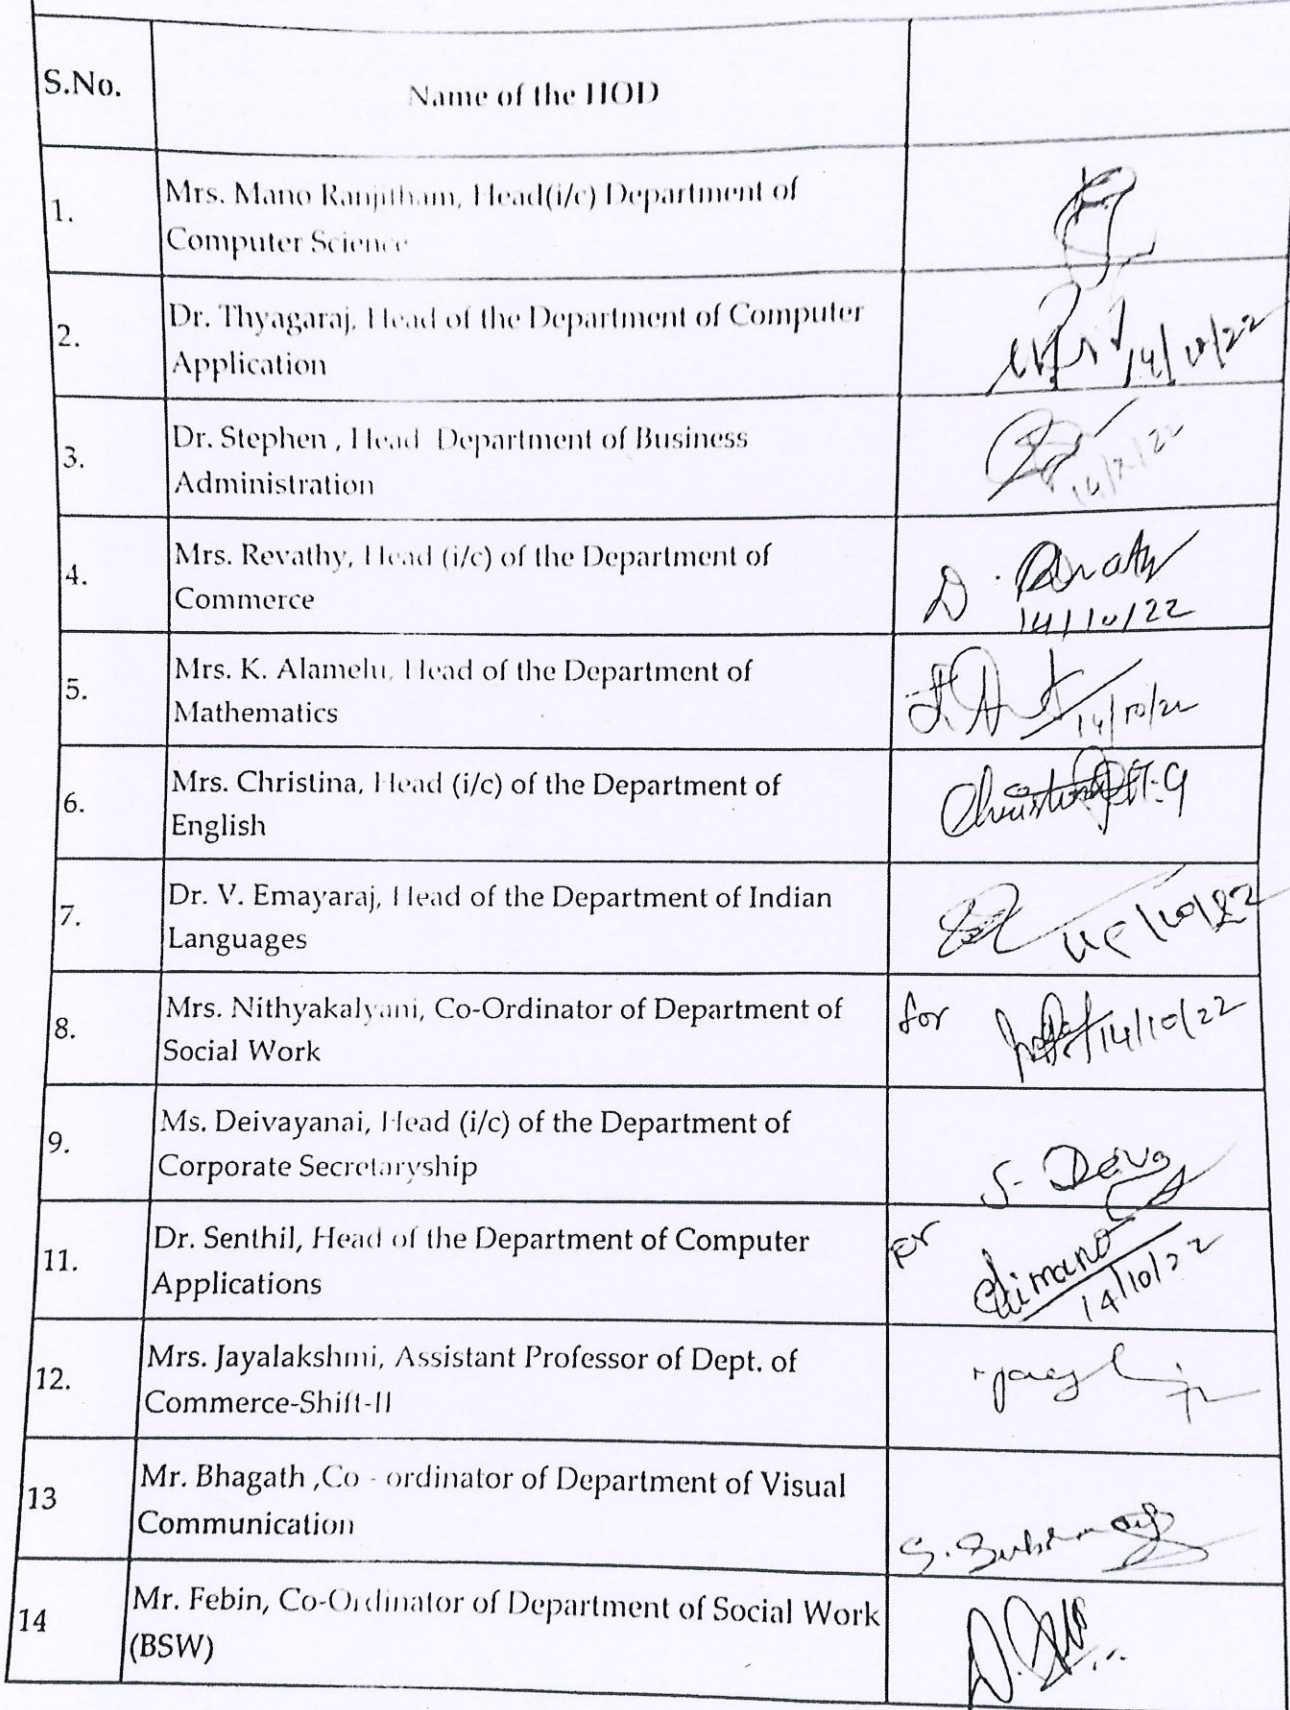 S.No.
Name of the HOD
1.
Mrs. Mano Ranjitham, Head(i/c) Department of
Computer Science
2.
Dr. Thyagaraj, Head of the Department of Computer
Application
14/10/22
3.
Dr. Stephen , Head Department of Business
Administration
4.
Mrs. Revathy, Head (i/c) of the Department of
Commerce
D. Revathy
14/10/22
5.
Mrs. K. Alamelu, Head of the Department of
Mathematics
14/10/22
6.
Mrs. Christina, Head (i/c) of the Department of
English
7.
Dr. V. Emayaraj, Head of the Department of Indian
Languages
8.
Mrs. Nithyakalyani, Co-Ordinator of Department of
Social Work
for
14/10/22
9.
Ms. Deivayanai, Head (i/c) of the Department of
Corporate Secretaryship
S. Deva
11.
Dr. Senthil, Head of the Department of Computer
Applications
For
14/10/22
12.
Mrs. Jayalakshmi, Assistant Professor of Dept. of
Commerce-Shift-II
13
Mr. Bhagath ,Co - ordinator of Department of Visual
Communication
14
Mr. Febin, Co-Ordinator of Department of Social Work
(BSW)